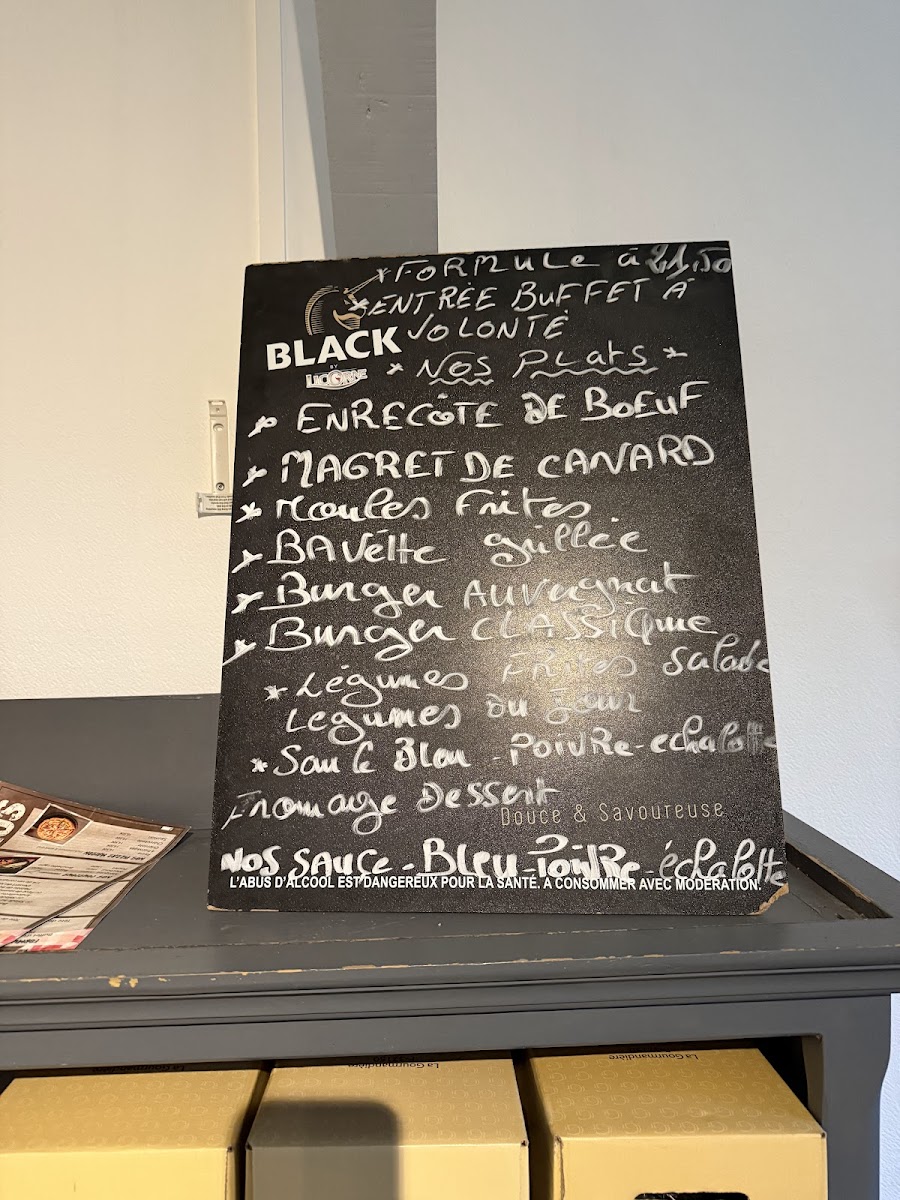 *FORMULE à 21,50
*ENTRÉE BUFFET À
VOLONTÉ
BLACK
BY
LICORNE
* NOS PLATS *
* ENRECÔTE DE BOEUF
* MAGRET DE CANARD
* Moules Frites
* BAVétte grillée
* Burger AUVergnat
* Burger CLASSIQUE
* Légumes FRITES salade
Legumes DU Jour
* Sauce Bleu - POIVRE - echalotte
Fromage Dessert
Douce & Savoureuse
NOS SAUCE - Bleu - Poivre - échalotte
L'ABUS D'ALCOOL EST DANGEREUX POUR LA SANTÉ. A CONSOMMER AVEC MODÉRATION.
La Gourmandière
La Gourmandière